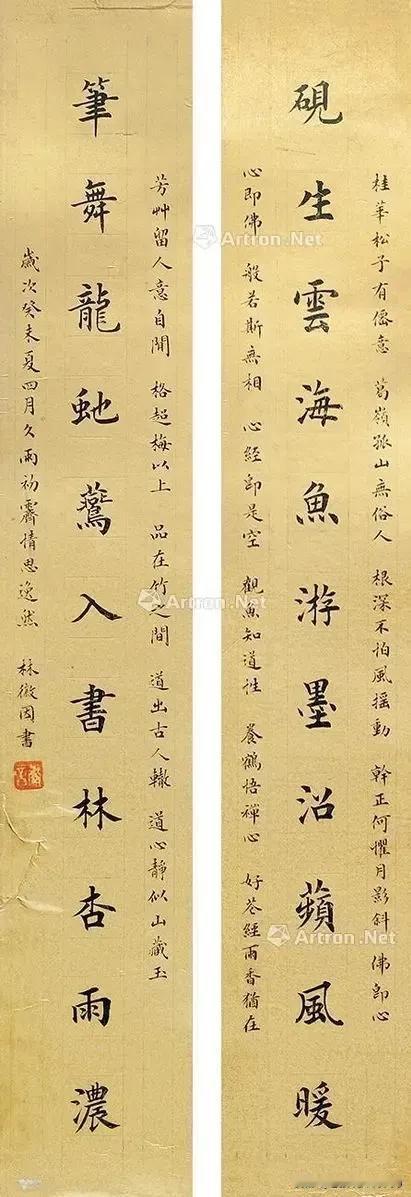 桂華松子有僊意 葛嶺孤山無俗人 根深不怕風摇動 幹正何懼月影斜 佛即心
硯生雲海魚游墨沼蘋風暖
心即佛 般若斯無相 心經即是空 觀魚知道性 養鶴悟禪心 好花經雨香猶在
芳艸留人意自閒 格超梅以上 品在竹之間 道出古人轍 道心靜似山藏玉
筆舞龍虵鷰入書林杏雨濃
歲次癸未夏四月久雨初霽情思逸然 林徽因書
Artron.Net
Artron.Net
Artron.Net
Artron.Net